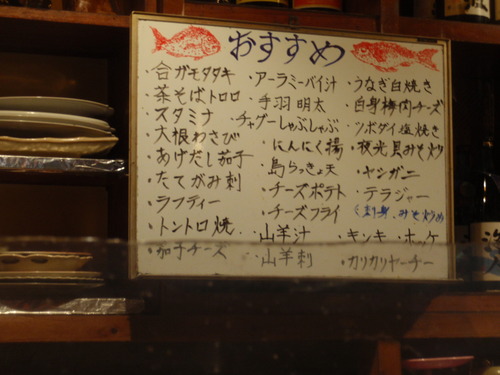 おすすめ
合ガモタタキ
茶そばトロロ
スタミナ
大根わさび
あげだし茄子
たてがみ刺
ラフティー
トントロ焼
茄子チーズ
・アーラミーバイ汁
・手羽明太
・チャグーしゃぶしゃぶ
・にんにく揚
・島らっきょ天
・チーズポテト
・チーズフライ
・山羊汁
・山羊刺
・うなぎ白焼き
・白身梅肉チーズ
・ツボダイ塩焼き
・夜光貝みそ炒
・ヤンガニ
・テラジャー
く刺身、みそ炒め
・キンキ・ホッケ
・カリカリヤーチー